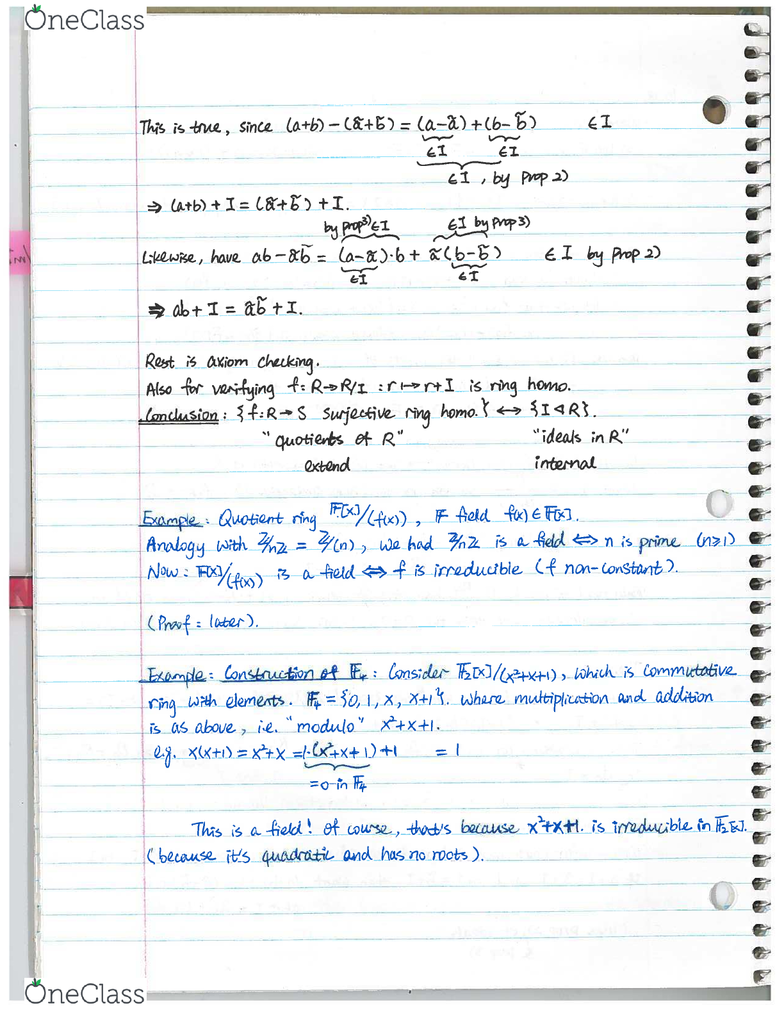 OneClass
This is true, since (a+b)-(ã+b̃) = (a-ã)+(b-b̃) ∈I
∈I ∈I
∈I, by Prop 2)
⇒ (a+b)+I = (ã+b̃)+I.
by prop3) ∈I ∈I by Prop 3)
Likewise, have ab-ãb̃ = (a-ã)·b + ã(b-b̃) ∈I by Prop 2)
∈I ∈I
⇒ ab+I = ãb̃+I.
Rest is axiom checking.
Also for verifying f:R→R/I :r↦r+I is ring homo.
Conclusion: {f:R→S surjective ring homo.} ↔ {I◁R}.
"quotients of R" "ideals in R"
extend internal
Example: Quotient ring F[x]/(f(x)), F field f(x)∈F[x].
Analogy with Z/nZ = Z/(n), we had Z/nZ is a field ⇔ n is prime (n≥1)
Now: F[x]/(f(x)) is a field ⇔ f is irreducible (f non-constant).
(Proof: later).
Example: Construction of F₄: Consider F₂[x]/(x²+x+1), which is commutative
ring with elements. F₄ = {0, 1, x, x+1}. where multiplication and addition
is as above, i.e. "modulo" x²+x+1.
e.g. x(x+1) = x²+x = 1·(x²+x+1)+1 = 1
=0 in F₄
This is a field! Of course, that's because x²+x+1. is irreducible in F₂[x].
(because it's quadratic and has no roots).
OneClass